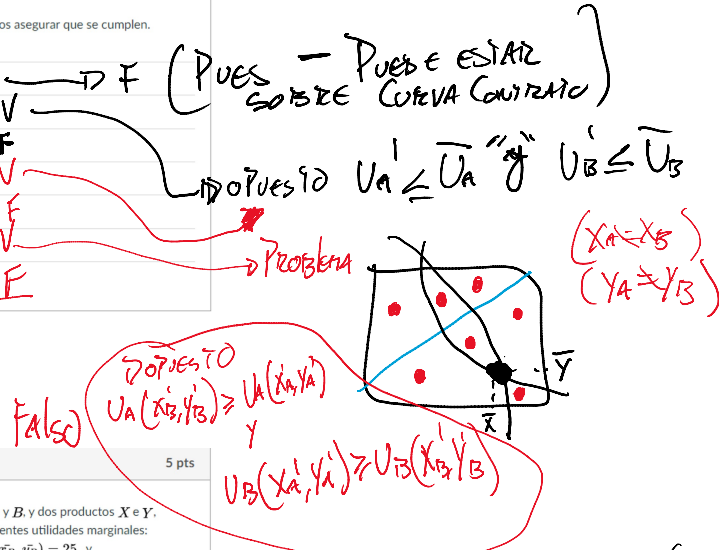 os asegurar que se cumplen.
F (PUES - PUEDE ESTAR
SOBRE CURVA CONTRATO)
V
F
OPUESTO UA' ≤ U̅A "y" UB' ≤ U̅B
V
F
V
PROBLEMA
F
(XA=XB)
(YA≠YB)
Y̅
X̅
OPUESTO
UA(X'B,Y'B) ≥ UA(X'A,Y'A)
Y
UB(X'A,Y'A) ≥ UB(X'B,Y'B)
FAlSO
5 pts
y B, y dos productos X e Y,
entes utilidades marginales:
= 25, y